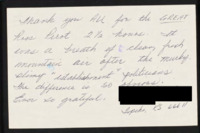 Thank you ALL for the GREAT
Ross Perot 2 ½ hours. It
was a breath of clean, fresh
mountain air after the murky
slimy "establishment" politicians
The difference is so obvious.
Ever so grateful.